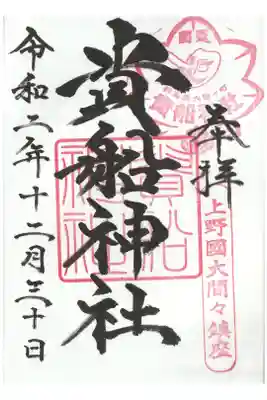 奉拝
上野國大間々鎮座
貴船神社
貴船神社
令和二年十二月三十日